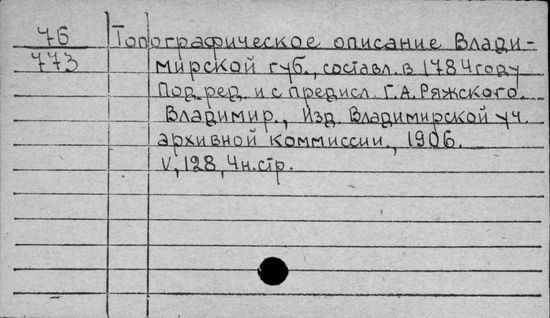 76 Топографическое описание Влади-
773 мирской губ., составл. в 1784 году
Под ред. и с предисл. Г.А. Ряжского.
Владимир., Изд. Владимирской уч.
архивной коммиссии., 1906.
V, 128, 4 н.стр.